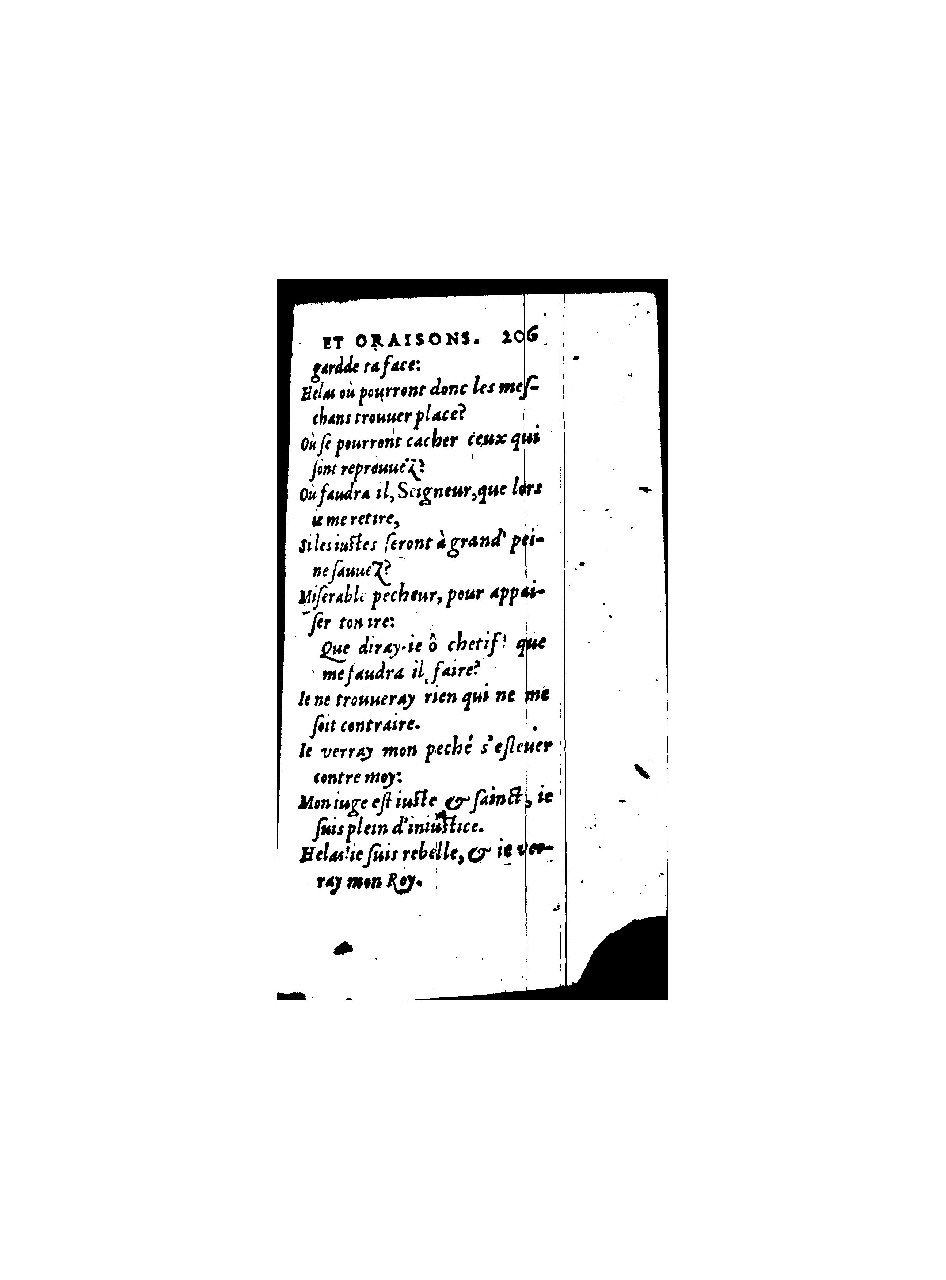 ET ORAISONS. 206
gardde ta face:
Helas où pourront donc les meſ-
chans trouuer place?
Où ſe pourront cacher ceux qui
ſont reprouuez?
Où faudra il, Seigneur, que lors
ie me retire,
Si les iuſtes ſeront à grand' pei-
ne ſauuez?
Miſerable pecheur, pour appai-
ſer ton ire:
Que diray-ie ô chetif! que
me faudra il faire?
Ie ne trouueray rien qui ne me
ſoit contraire.
Ie verray mon peché s'eſleuer
contre moy:
Mon iuge eſt iuſte & ſainct, ie
ſuis plein d'iniuſtice.
Helas! ie ſuis rebelle, & ie ver-
ray mon Roy.